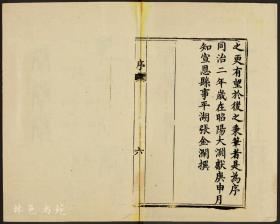 之更有望於後之秉筆者是為序
同治二年歲在昭陽大淵獻庚申月
知宣恩縣事平湖張金瀾撰
序
六